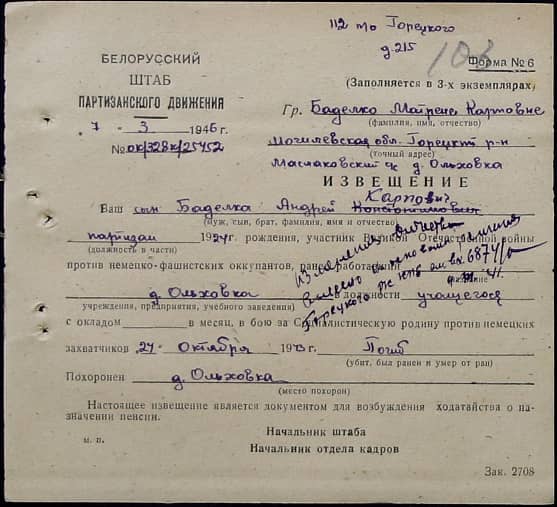 112 то Горецкого
д. 215
103
Форма № 6
БЕЛОРУССКИЙ
ШТАБ
ПАРТИЗАНСКОГО ДВИЖЕНИЯ
7 — 3 1946 г.
№ ок/328к/25452
(Заполняется в 3-х экземплярах)
Гр. Баделко Матрене Карповне
(фамилия, имя, отчество)
Могилевская обл. Горецкий р-н
(точный адрес)
Маслаковский с/с д. Ольховка
ИЗВЕЩЕНИЕ
Карпович
Ваш сын Баделка Андрей Константинович
(муж, сын, брат, фамилия, имя и отчество)
партизан 1924 г. рождения, участник Великой Отечественной войны
(должность в части)
против немецко-фашистских оккупантов, ранее работавший
название
д. Ольховка в должности учащегося
учреждения, предприятия, учебного заведения)
с окладом в месяц, в бою за Социалистическую родину против немецких
захватчиков 27 Октября 1943 г. Погиб
(убит, был ранен и умер от ран)
Похоронен д. Ольховка
(место похорон)
Исправления отчества
на основании
Горецкого вх. 6874/
Настоящее извещение является документом для возбуждения ходатайства о на-
значении пенсии.
Начальник штаба
м. п.
Начальник отдела кадров
Зак. 2708